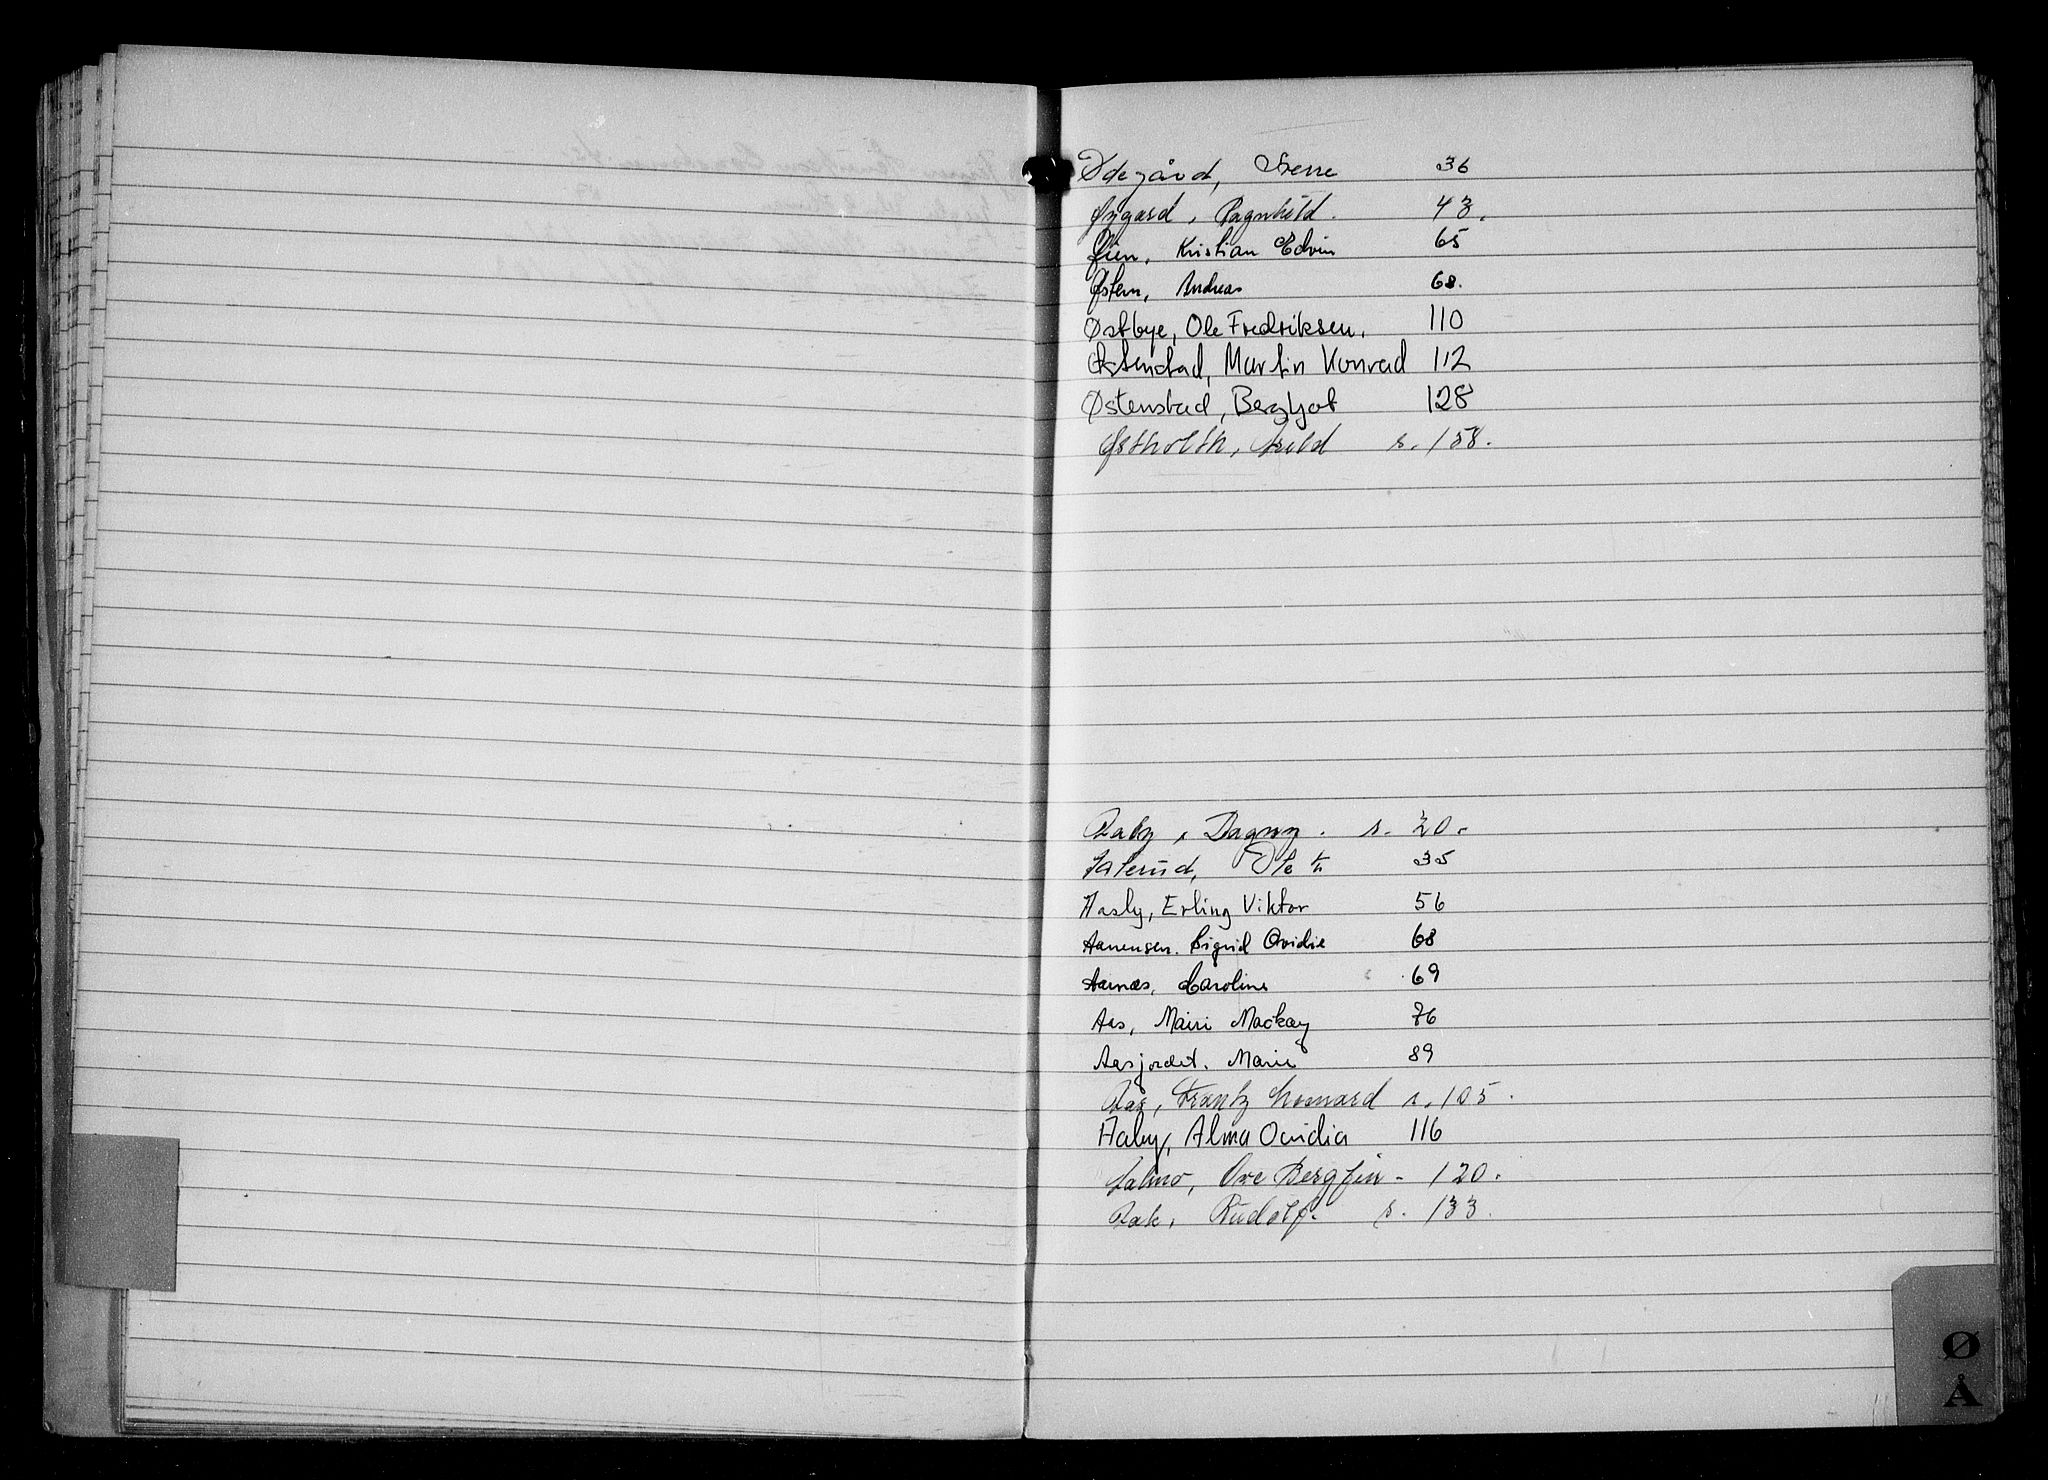 Ødegård, Sverre 36
Øygard, Ragnhild. 43.
Øien, Kristian Edvin 65
Østern, Andreas 68.
Østbye, Ole Fredriksen, 110
Østenstad, Martin Konrad 112
Østenstad, Bergljot 128
Østholth, Arild s. 158.
Aaby, Dagny. s. 20.
Aaterud, Ole 35
Aasly, Erling Viktor 56
Aanensen. Sigrid Ovidie 68
Aarnæs, Caroline 69
Aas, Mairi Mackay 76
Aasjordet. Marie 89
Aas, Frantz s. 105.
Aaby, Alma Ovidia 116
Aalmo, Ove Bergfin - 120.
Aak, Rudolf. s. 133.
Ø
Å